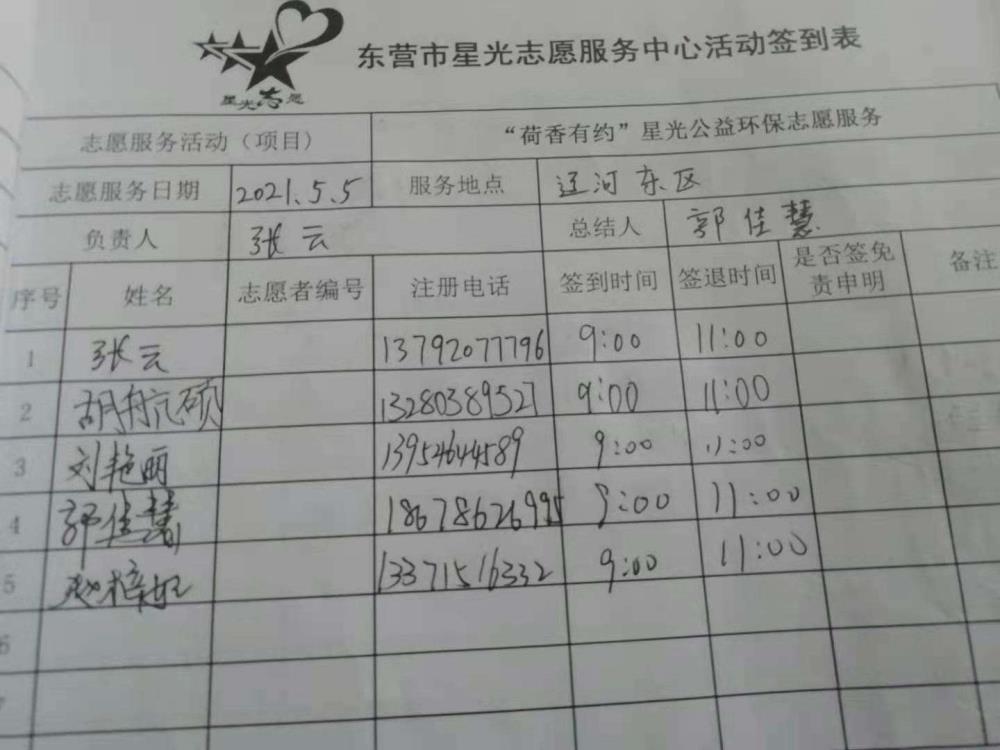 星光志愿
东营市星光志愿服务中心活动签到表
志愿服务活动（项目） “荷香有约”星光公益环保志愿服务
志愿服务日期 2021.5.5 服务地点 辽河东区
负责人 张云 总结人 郭佳慧
序号 姓名 志愿者编号 注册电话 签到时间 签退时间 是否签免责申明 备注
1 张云 13792077796 9:00 11:00
2 胡航硕 13280389527 9:00 11:00
3 刘艳丽 13954644589 9:00 11:00
4 郭佳慧 18678626995 9:00 11:00
5 赵 13371516332 9:00 11:00
6
7